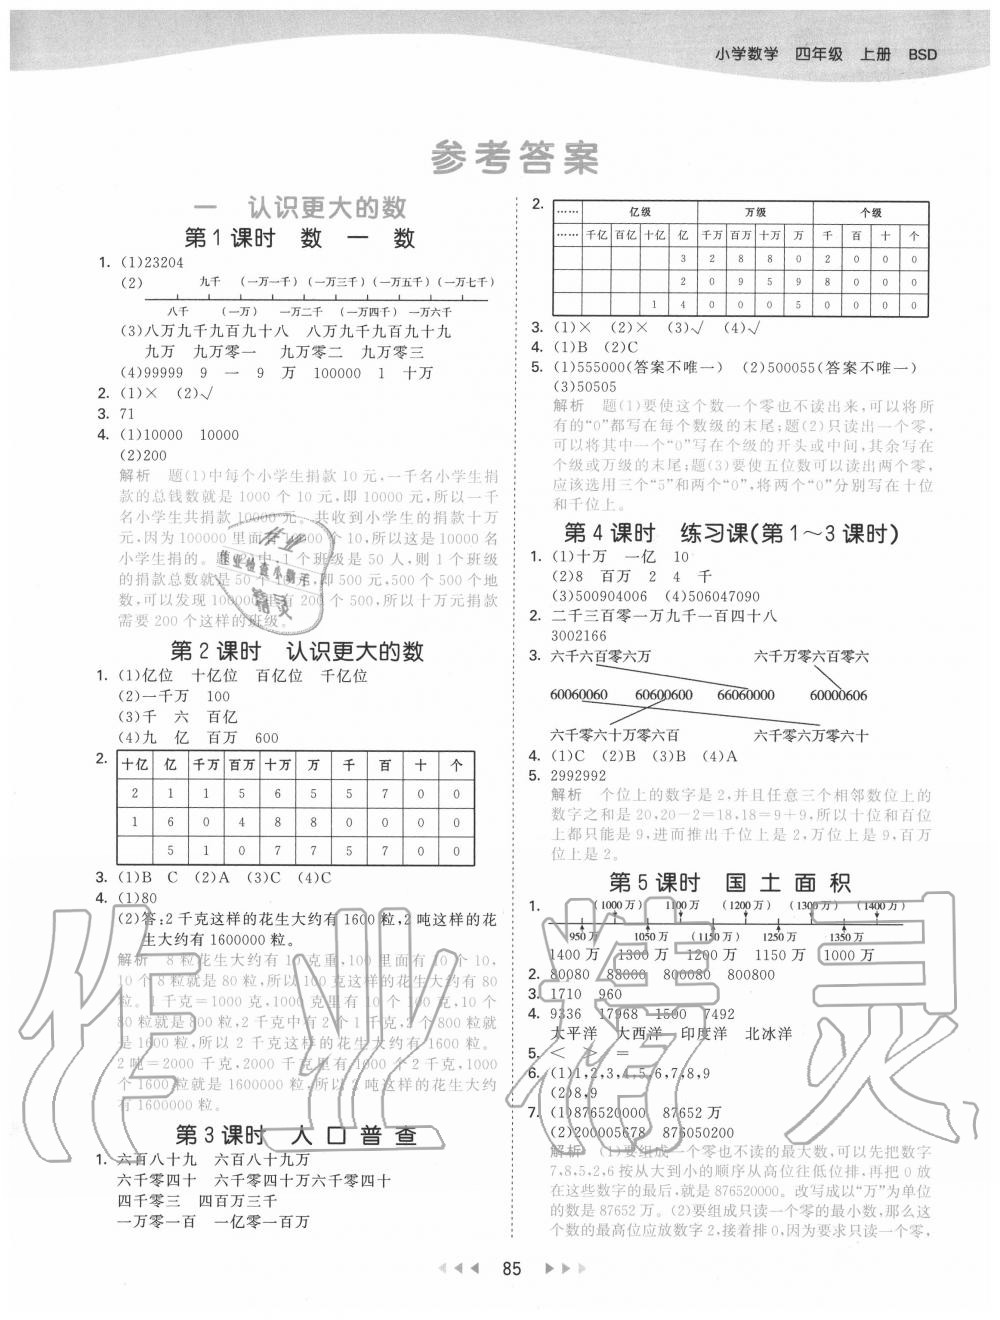 小学数学 四年级 上册 BSD
参考答案
一 认识更大的数
第1课时 数一数
1. (1)23204
(2) 九千 (一万一千) (一万三千) (一万五千) (一万七千)
八千 (一万) 一万二千 (一万四千) 一万六千
(3)八万九千九百九十八 八万九千九百九十九
九万 九万零一 九万零二 九万零三
(4)99999 9 一 9 万 100000 1 十万
2. (1)× (2)√
3. 71
4. (1)10000 10000
(2)200
解析 题(1)中每个小学生捐款10元,一千名小学生捐
款的总钱数就是1000个10元,即10000元,所以一千
名小学生共捐款10000元。共收到小学生捐款十万
元,因为100000里面有10000个10,所以这是10000名
小学生捐的。题(2)中,1个班级是50人,则1个班级
的捐款总数就是50个10元,即500元,500个500地
数,可以发现100000里有200个500,所以十万元捐款
需要200个这样的班级。
第2课时 认识更大的数
1. (1)亿位 十亿位 百亿位 千亿位
(2)一千万 100
(3)千 六 百亿
(4)九 亿 百万 600
2. 十亿 亿 千万 百万 十万 万 千 百 十 个
2 1 1 5 6 5 5 7 0 0
1 6 0 4 8 8 0 0 0 0
5 1 0 7 7 5 7 0 0
3. (1)B C (2)A (3)C (4)C
4. (1)80
(2)答:2千克这样的花生大约有1600粒,2吨这样的花
生大约有1600000粒。
解析 8粒花生大约有10克重,100里面有10个10,
10个8粒就是80粒,所以100克这样的花生大约有80
粒。1千克=1000克,1000克里有10个100克,10个
80粒就是800粒,2千克中有2个1000克,2个800就
是1600粒,所以2千克这样的花生大约有1600粒。
2吨=2000千克,2000千克里有1000个2千克,1000
个1600粒就是1600000粒,所以2吨这样的花生大约
有1600000粒。
第3课时 人口普查
1. 六百八十九 六百八十九万
六千零四十 六千零四十万六千零四十
四千零三 四百万三千
一万零一百 一亿零一百万
2. …… 亿级 万级 个级
…… 千亿 百亿 十亿 亿 千万 百万 十万 万 千 百 十 个
3 2 8 8 0 2 0 0 0
2 0 9 5 9 8 0 0 0
1 4 0 0 5 0 0 0 0 0
3. (1)× (2)× (3)√ (4)√
4. (1)B (2)C
5. (1)555000(答案不唯一) (2)500055(答案不唯一)
(3)50505
解析 题(1)要使这个数一个零也不读出来,可以将所
有的“0”都写在每个数级的末尾;题(2)只读出一个零,
可以将其中一个“0”写在个级的开头或中间,其余写在
个级或万级的末尾;题(3)要使五位数可以读出两个零,
应该选用三个“5”和两个“0”,将两个“0”分别写在十位
和千位上。
第4课时 练习课(第1~3课时)
1. (1)十万 一亿 10
(2)8 百万 2 4 千
(3)500904006 (4)506047090
2. 二千三百零一万九千一百四十八
3002166
3. 六千六百零六万 六千万零六百零六
60060060 60600600 66060000 60000606
六千零六十万零六百 六千零六万零六十
4. (1)C (2)B (3)B (4)A
5. 2992992
解析 个位上的数字是2,并且任意三个相邻数位上的
数字之和是20,20-2=18,18=9+9,所以十位和百位
上都只能是9,进而推出千位上是2,万位上是9,百万
位上是2。
第5课时 国土面积
1. (1000万) 1100万 (1200万) (1300万) (1400万)
950万 1050万 (1150万) 1250万 1350万
1400万 1300万 1200万 1150万 1000万
2. 80080 88000 800080 800800
3. 1710 960
4. 9336 17968 1500 7492
太平洋 大西洋 印度洋 北冰洋
5. < > =
6. (1)1,2,3,4,5,6,7,8,9
(2)8,9
7. (1)876520000 87652万
(2)200005678 876050200
解析 (1)要组成一个零也不读的最大数,可以先把数字
7,8,5,2,6按从大到小的顺序从高位往低位排,再把0放
在这些数字的最后,就是876520000。改写成以“万”为单位
的数是87652万。(2)要组成只读一个零的最小数,那么这
个数的最高位应放数字2,接着排0,因为要求只读一个零,
85
作业
作业检查小助手
精灵
作业精灵